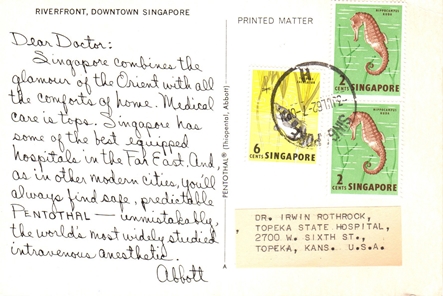 RIVERFRONT, DOWNTOWN SINGAPORE
Dear Doctor:
Singapore combines the
glamour of the Orient with all
the comforts of home. Medical
care is tops. Singapore has
some of the best equipped
hospitals in the Far East. And,
as in other modern cities, you'll
always find safe, predictable
PENTOTHAL — unmistakably,
the world's most widely studied
intravenous anesthetic.
Abbott
PENTOTHAL® (Thiopental, Abbott)
PRINTED MATTER
HIPPOCAMPUS
KUDA
2
CENTS
SINGAPORE
6
CENTS
SINGAPORE
HIPPOCAMPUS
KUDA
2
CENTS
SINGAPORE
DR. IRWIN ROTHROCK,
TOPEKA STATE HOSPITAL,
2700 W. SIXTH ST.,
TOPEKA, KANS. U.S.A.